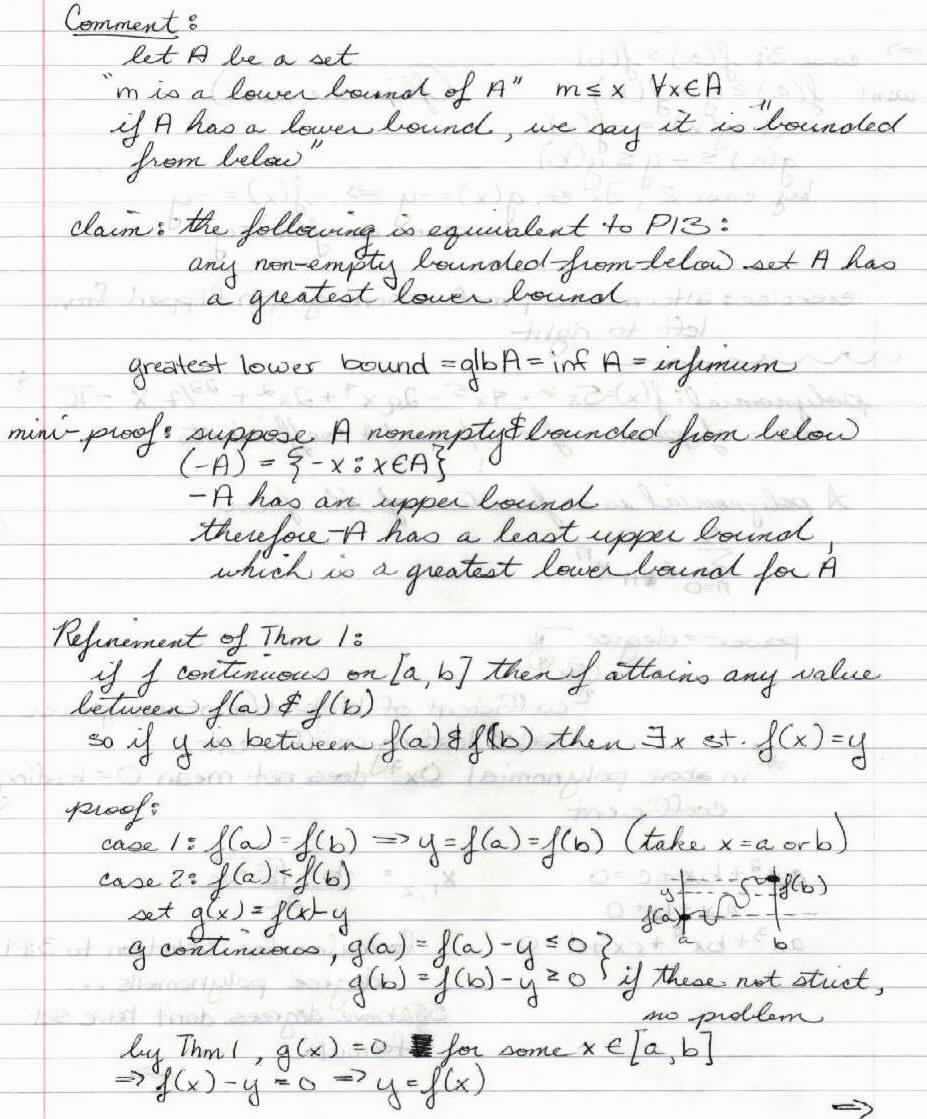 Comment:
let A be a set
"m is a lower bound of A" m ≤ x ∀x∈A
if A has a lower bound, we say it is "bounded
from below"
claim: the following is equivalent to P13:
any non-empty bounded-from-below set A has
a greatest lower bound
greatest lower bound = glb A = inf A = infimum
mini-proof: suppose A nonempty & bounded from below
(-A) = {-x : x∈A}
-A has an upper bound
therefore -A has a least upper bound,
which is a greatest lower bound for A
Refinement of Thm 1:
if f continuous on [a,b] then f attains any value
between f(a) & f(b)
so if y is between f(a) & f(b) then ∃x st. f(x)=y
proof:
case 1: f(a) = f(b) ⟹ y = f(a) = f(b) (take x=a or b)
case 2: f(a) < f(b)
set g(x) = f(x)-y
y f(b)
f(a)
a b
g continuous, g(a) = f(a) - y ≤ 0 }
g(b) = f(b) - y ≥ 0 } if these not strict,
no problem
by Thm 1, g(x) = 0 for some x ∈ [a,b]
⟹ f(x) - y = 0 ⟹ y = f(x)
⟹